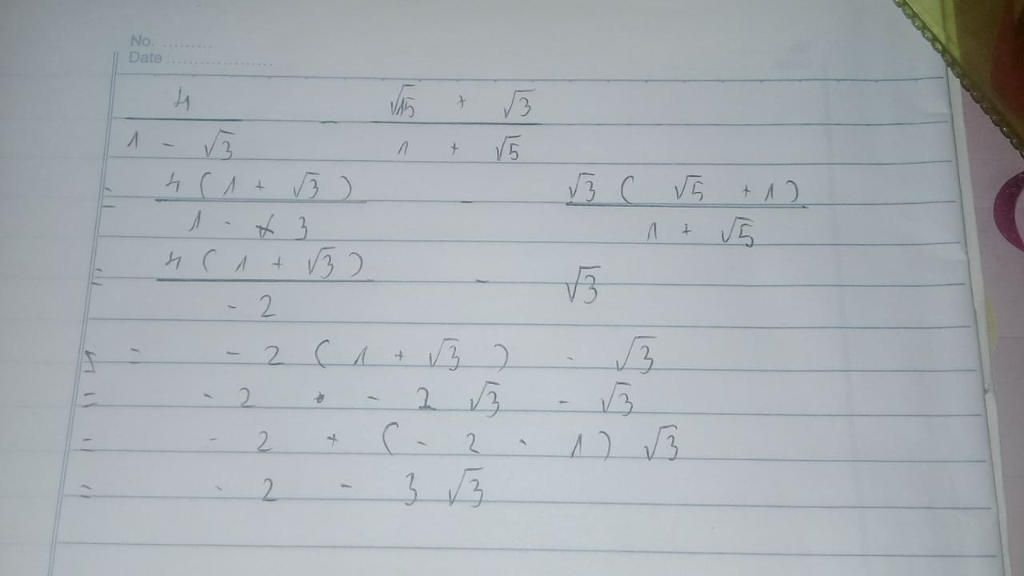 No. .........
Date ...................
4/(1 - √3) - (√15 + √3)/(1 + √5)
= 4(1 + √3)/(1 - 3) - √3(√5 + 1)/(1 + √5)
= 4(1 + √3)/(-2) - √3
= -2(1 + √3) - √3
= -2 - 2√3 - √3
= -2 + (-2 - 1)√3
= -2 - 3√3